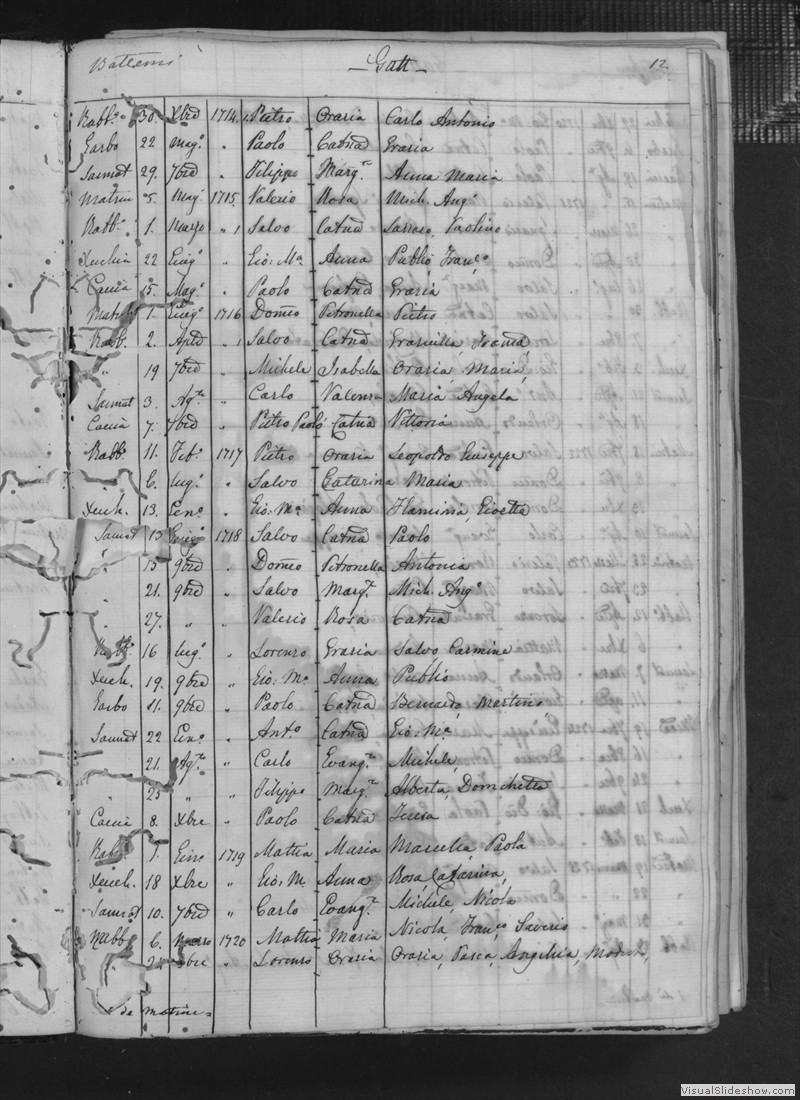 Battesmi — Gatt — 12.
Rabb.º 30. Xbrê 1714. Pietro Oraria Carlo Antonio
Garbo 22 Magº. " Paolo Catnâ Graria
Samat 29. 7brê " Filippo Margta. Anna Maria
Matriu 5. Magº 1715. Valerio Rosa Mich. Angº
Rabbº 1. Marzo " Salvo Catnâ Paolino
Xeuhia 22 Giugº " Gio: Mª Anna Publio Francº
Caccia 15. Magº. " Paolo Catnâ Graria
Matriu 1. Giugº. 1716 Domco Petronella Pietro
Rabb. 2. Aplê " Salvo Catnâ Graziella
" 19 7brê " Michele Isabella Oraria Maria
Samat 3. Agto " Carlo Valenza Maria Angela
Caccia 7. 7brê " Pietro Paolo Catnâ Vittoria
Rabbº 11. Febº. 1717 Pietro Oraria Leopoldo Giuseppe
" 6. Lugº. " Salvo Catarina Maria
Xeuh. 13. Genº. " Gio: Mª Anna Flaminia,
Samat 13 Giugº 1718 Salvo Catnâ Paolo
" 15 9brê " Domco Petronella Antonia
" 21. 9brê " Salvo Margta. Mich. Angº
" 27. " " Valerio Rosa Catnâ
Rabbº. 16 Lugº. " Lorenzo Graria Salvo Carmine
Xeuh. 19. 9bre " Gio: Mª Anna Publio
Garbo 11. 9brê " Paolo Catnâ Bernardo, Martino
Samat 22 Genº. " Antº Catnâ Gio: Mª.
" 21. Agto. " Carlo Evangta. Michele,
" 25 " " Filippo Margta. Alberta,
Caccia 8. Xbre " Paolo Catnâ Teresa
Rabº 1. Genº 1719 Mattia Maria Paola
Xeuch. 18 Xbre " Gio. M. Anna Rosa, Catarina,
Samat 10. 7brê " Carlo Evangta. Michele, Nicola
Rabbº 6. Marzo 1720 Mattia Maria Nicola, Francº Saverio
" " Lorenzo Oraria Oraria, Pasca,
VisualSlideshow.com